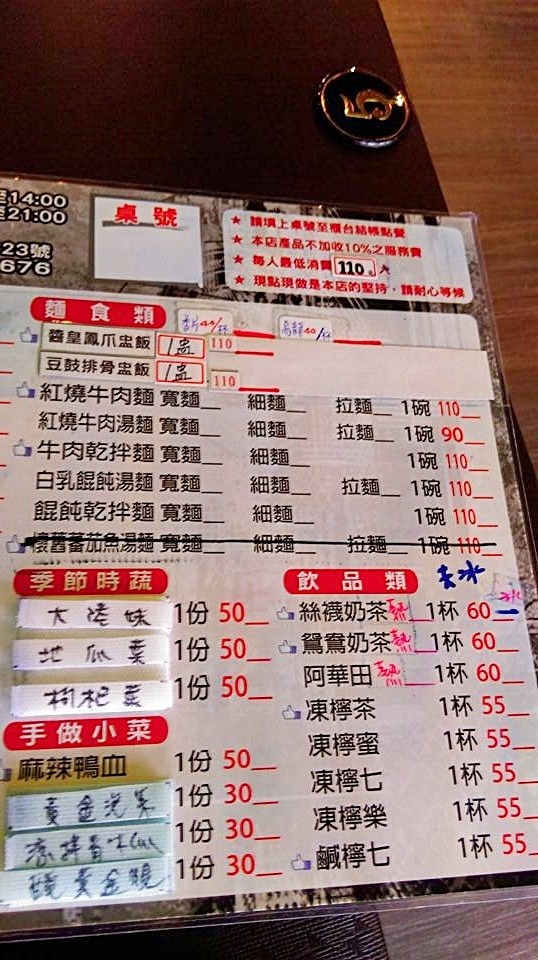 5
14:00
21:00
23號
676
桌號
★ 請填上桌號至櫃台結帳點餐
★ 本店產品不加收10%之服務費
★ 每人最低消費 110元
★ 現點現做是本店的堅持,請耐心等候
麵食類
40/杯
40/杯
醬皇鳳爪盅飯 1盅 110
豆鼓排骨盅飯 1盅 110
紅燒牛肉麵 寬麵__ 細麵__ 拉麵__ 1碗 110__
紅燒牛肉湯麵 寬麵__ 細麵__ 拉麵__ 1碗 90__
牛肉乾拌麵 寬麵__ 細麵__ 1碗 110__
白乳餛飩湯麵 寬麵__ 細麵__ 拉麵__ 1碗 110__
餛飩乾拌麵 寬麵__ 細麵__ 1碗 110__
懷舊蕃茄魚湯麵 寬麵__ 細麵__ 拉麵__ 1碗 110__
季節時蔬
大陸妹 1份 50__
地瓜葉 1份 50__
枸杞葉 1份 50__
手做小菜
麻辣鴨血 1份 50__
黃金泡菜 1份 30__
1份 30__
1份 30__
飲品類
去冰
絲襪奶茶 熱 1杯 60__
鴛鴦奶茶 熱 1杯 60__
阿華田 熱 1杯 60__
凍檸茶 1杯 55__
凍檸蜜 1杯 55__
凍檸七 1杯 55__
凍檸樂 1杯 55__
鹹檸七 1杯 55__